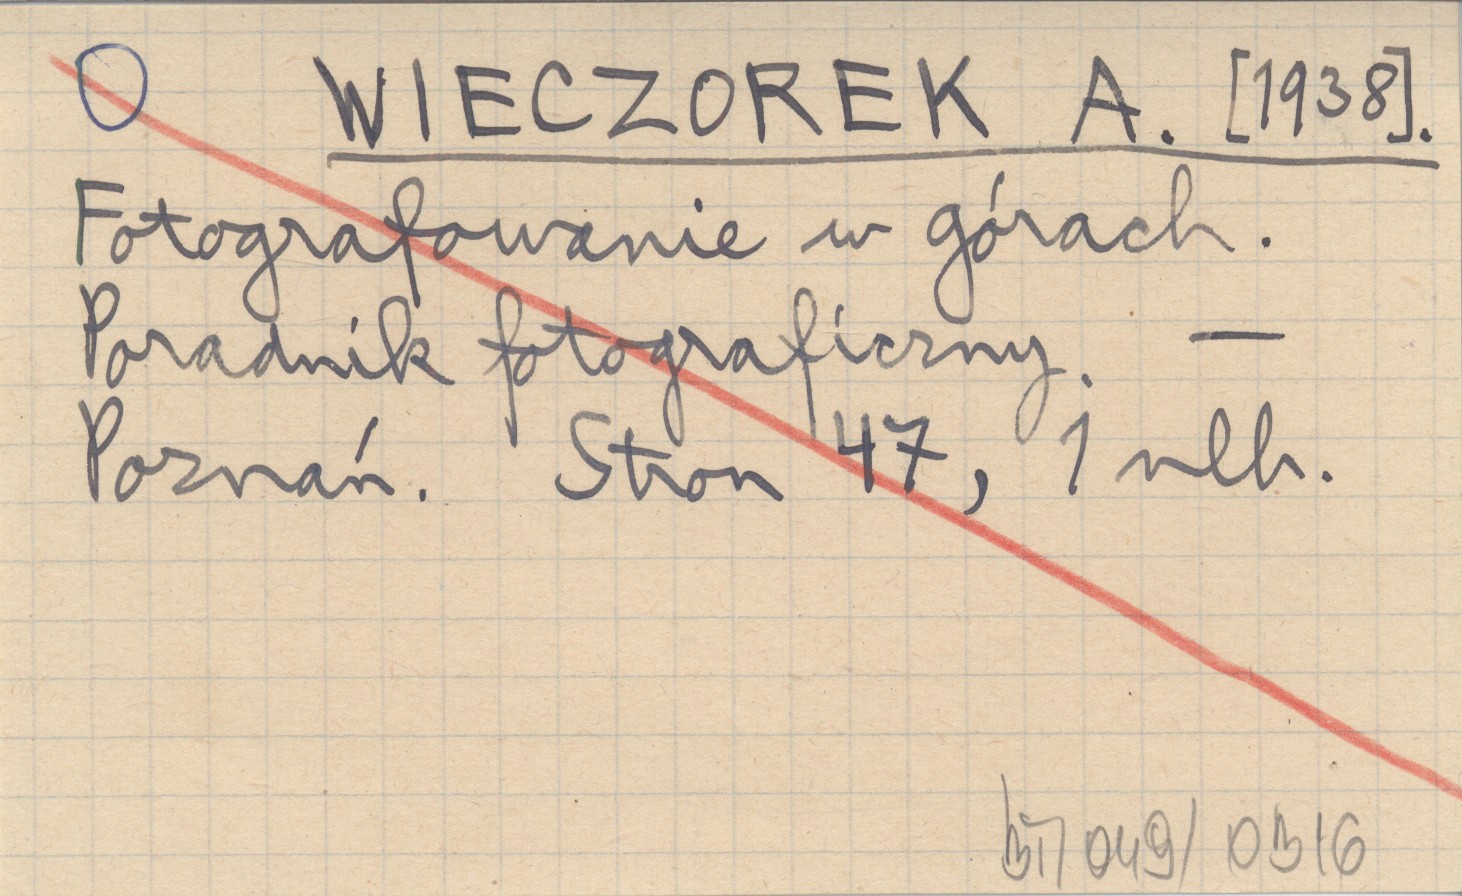 WIECZOREK A. [1938].
Fotografowanie w górach.
Poradnik fotograficzny. —
Poznań. Stron 47, 1 nlb.
049/ 0316